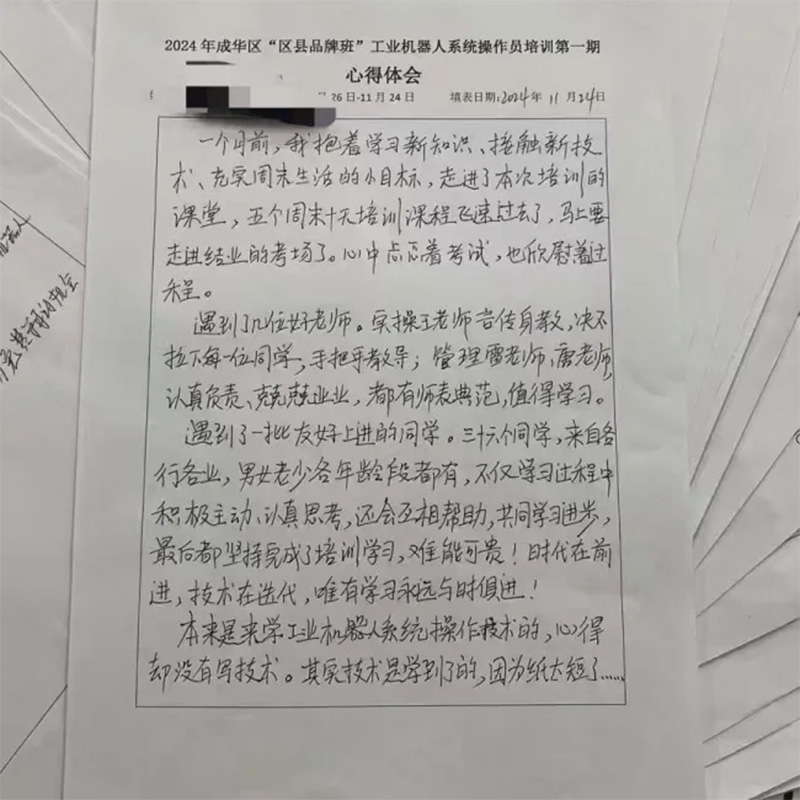 2024年成华区“区县品牌班”工业机器人系统操作员培训第一期
心得体会
月26日-11月24日 填表日期:2024年11月24日
一个月前，我抱着学习新知识、接触新技
术、充实周末生活的小目标，走进了本次培训的
课堂，五个周末十天培训课程飞速过去了，马上要
走进结业的考场了。心中忐忑着考试，也欣慰着过
程。
遇到了几位好老师。实操王老师言传身教，决不
拉下每一位同学，手把手教导；管理雷老师、唐老师，
认真负责、兢兢业业，都有师表典范，值得学习。
遇到了一批友好上进的同学。三十六个同学，来自各
行各业，男女老少各年龄段都有，不仅学习过程中
积极主动、认真思考，还会互相帮助，共同学习进步，
最后都坚持完成了培训学习，难能可贵！时代在前
进，技术在迭代，唯有学习永远与时俱进！
本来是来学工业机器人系统操作技术的，心得
却没有写技术。其实技术是学到了的，因为纸太短了……